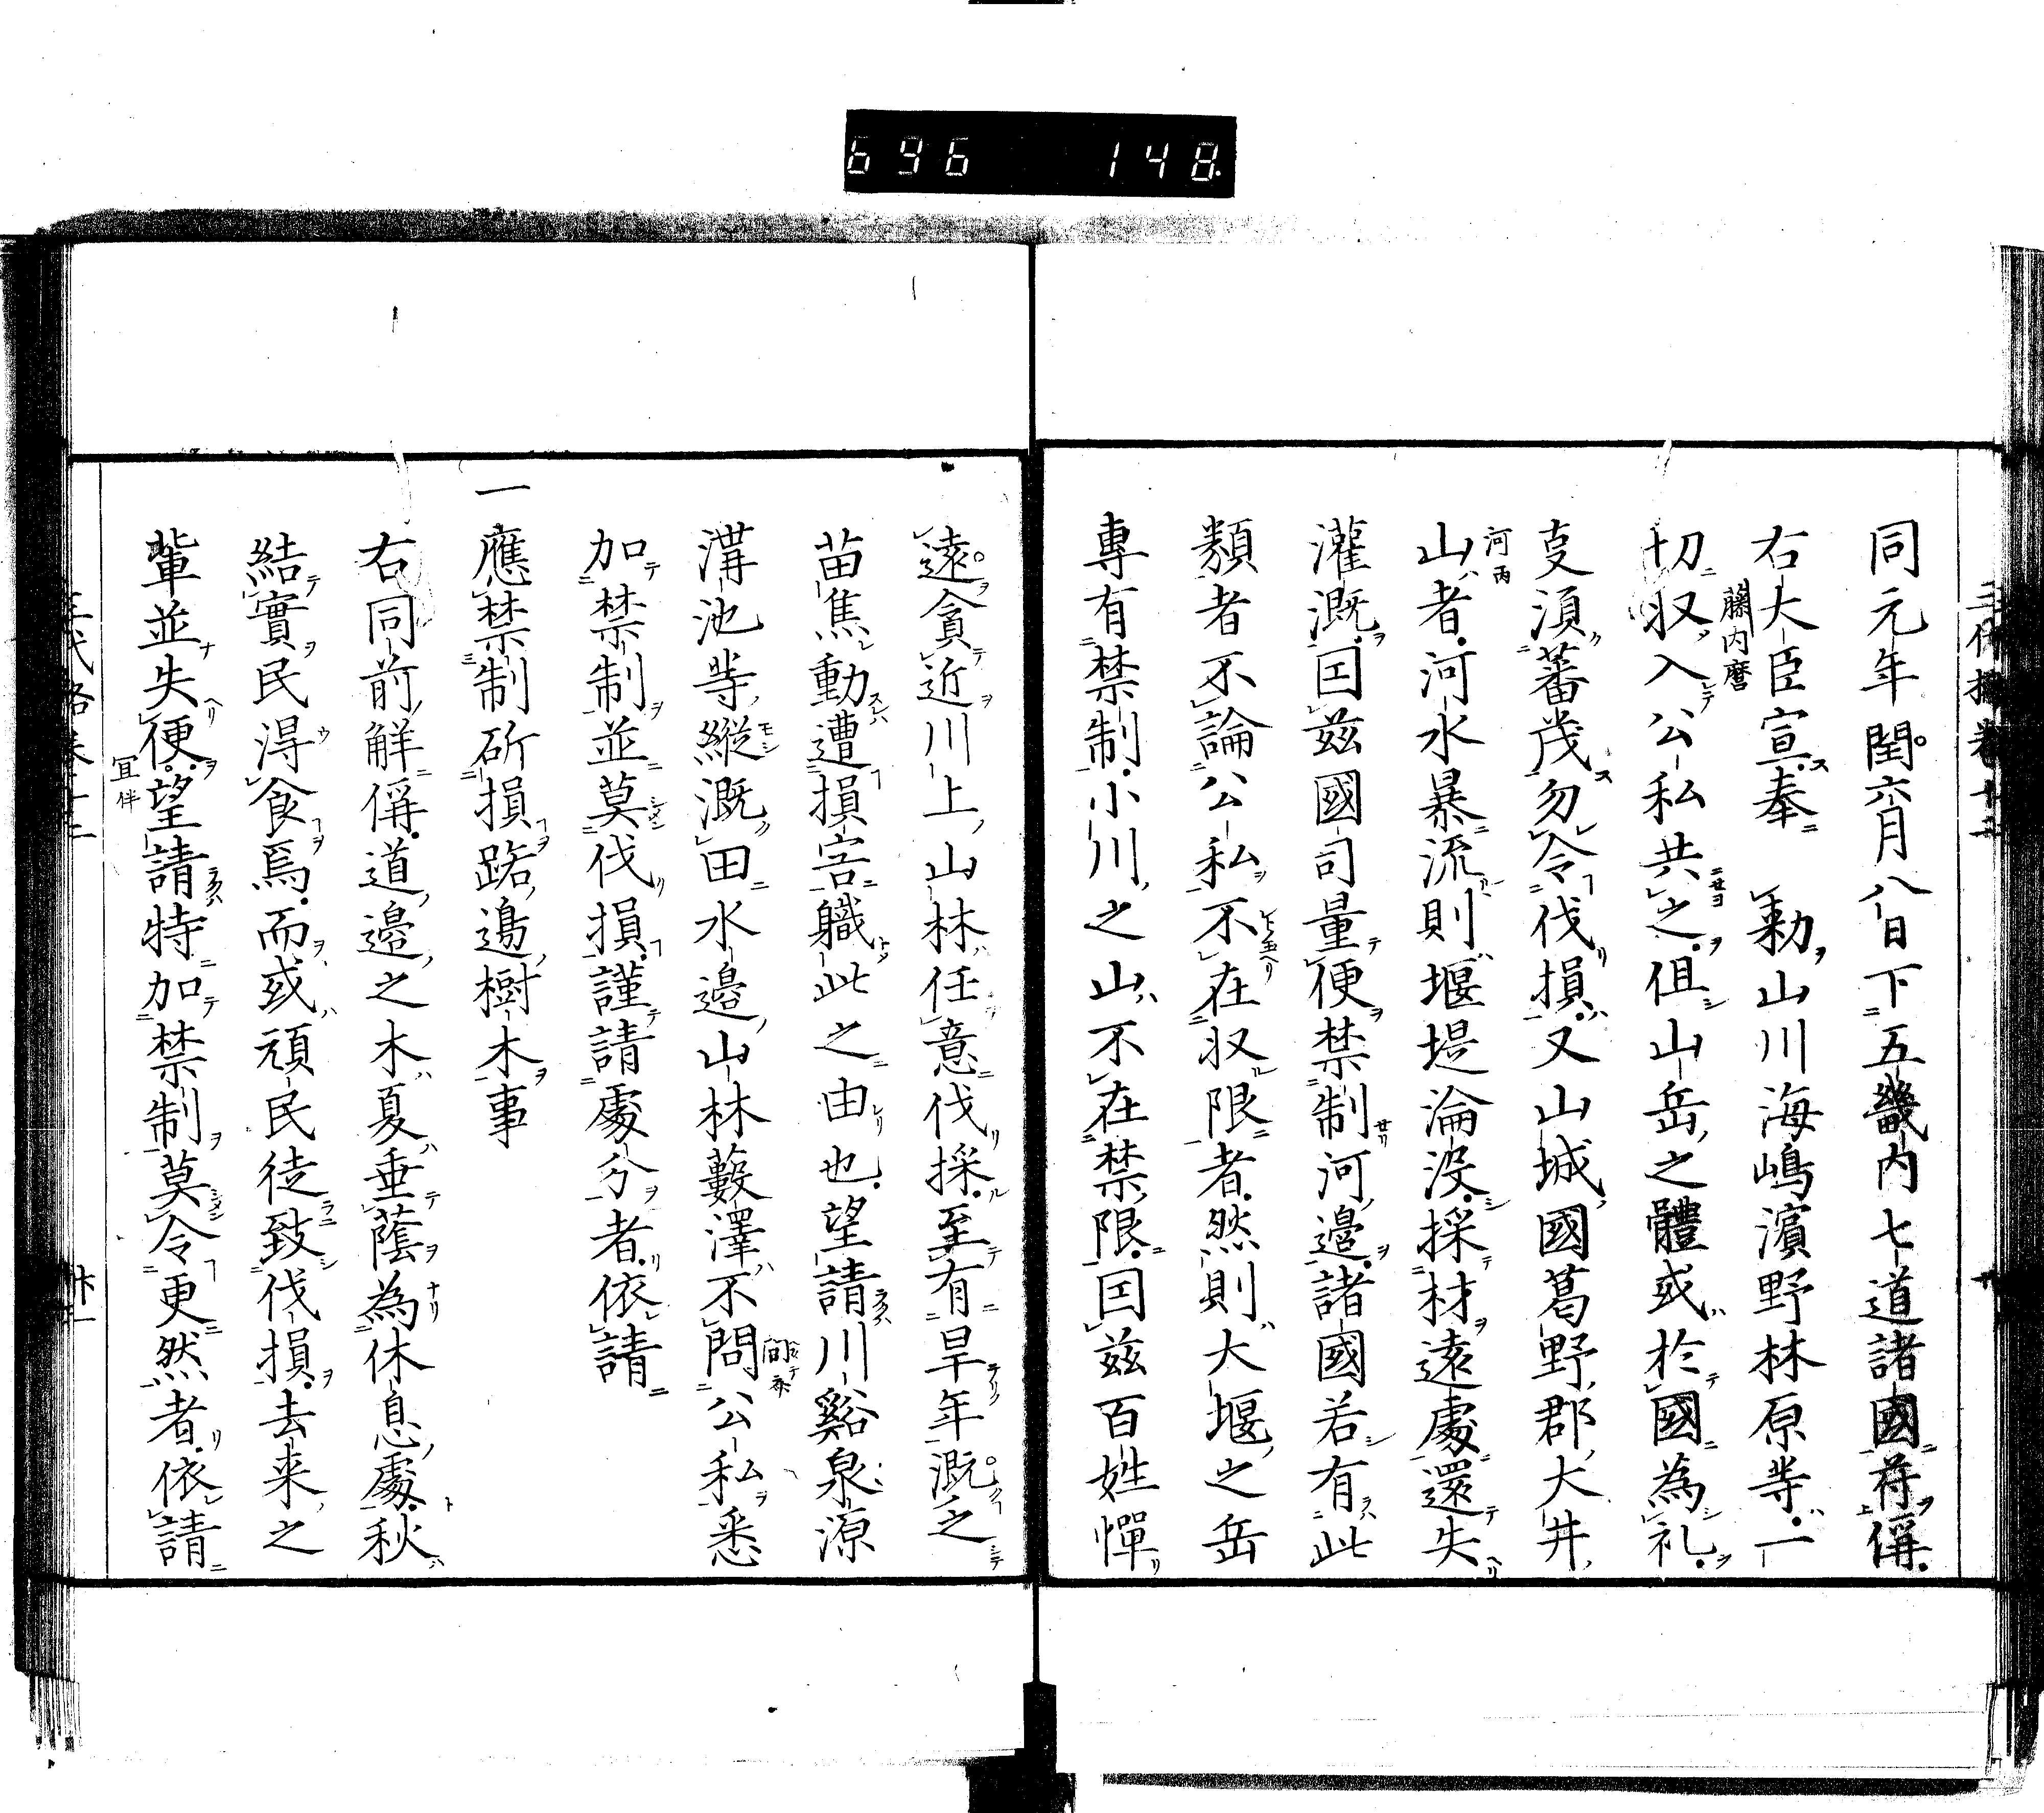 696 148
同元年閏六月八日下五畿内七道諸國苻偁
右大臣宣奉 勅山川海嶋濵野林原䒭一
藤内麿
切収入公私共之但山岳之體或於國為礼
㕝湏蕃茂勿令伐損又山城國葛野郡大井
河丙
山者河水暴流則堰堤淪没採材遠處還失
灌漑囙兹國司量便禁制河邉諸國若有此
類者不論公私不在収限者然則大堰之岳
專有禁制小川之山不在禁限囙兹百姓憚
遠貪近川上山林任意伐採至有旱年漑之
苗焦動遭損害職此之由也望請川谿泉源
溝池䒭縱漑田水邉山林藪澤不問公私悉
加禁制並莫伐損謹請處分者依請
一應禁制斫損路邉樹木事
右同前解偁道邉之木夏垂蔭為休息處秋
結實民淂食焉而或頑民徒致伐損去来之
軰並失便望請特加禁制莫令更然者依請
冝伴